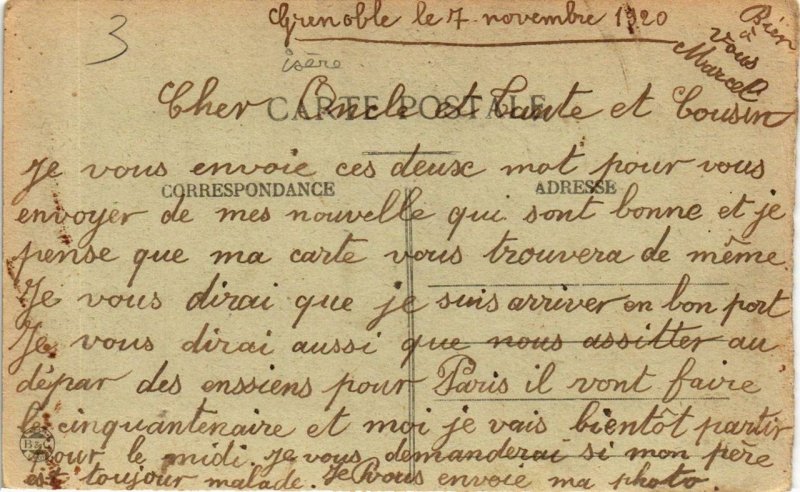 3
Grenoble le 7 novembre 1920
isère
Bien
à
vous
Marcel
CARTE POSTALE
Cher Oncle et Tante et Cousin
Je vous envoie ces deux mot pour vous
CORRESPONDANCE
ADRESSE
envoyer de mes nouvelle qui sont bonne et je
pense que ma carte vous trouvera de même.
Je vous dirai que je suis arriver en bon port
Je vous dirai aussi que nous assitter au
dépar des enssiens pour Paris il vont faire
le cinquantenaire et moi je vais bientôt partir
B & G
pour le midi. je vous demanderai si mon père
est toujour malade. Je vous envoie ma photo.